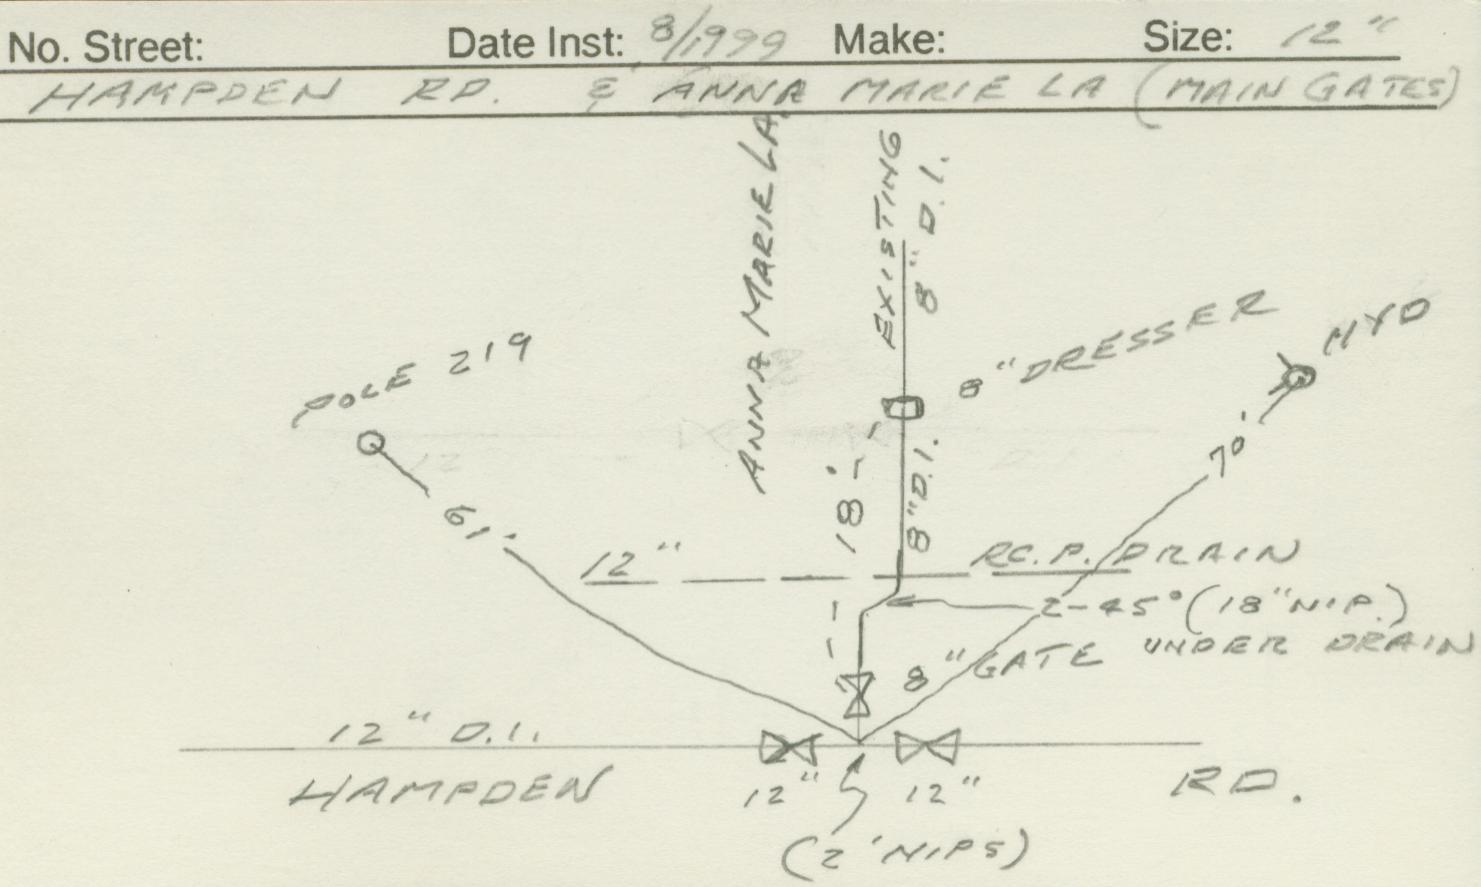 No. Street: Date Inst: 8/1999 Make: Size: 12"
HAMPDEN RD. & ANNA MARIE LA (MAIN GATES)
ANNA MARIE LA.
EXISTING
8" D.I.
POLE 219
8" DRESSER
HYD
61'
18'
8" D.I.
70'
12" R.C.P. DRAIN
2-45° (18" NIP.)
UNDER DRAIN
8" GATE
12" D.I.
HAMPDEN RD.
12" 12"
(2' NIPS)